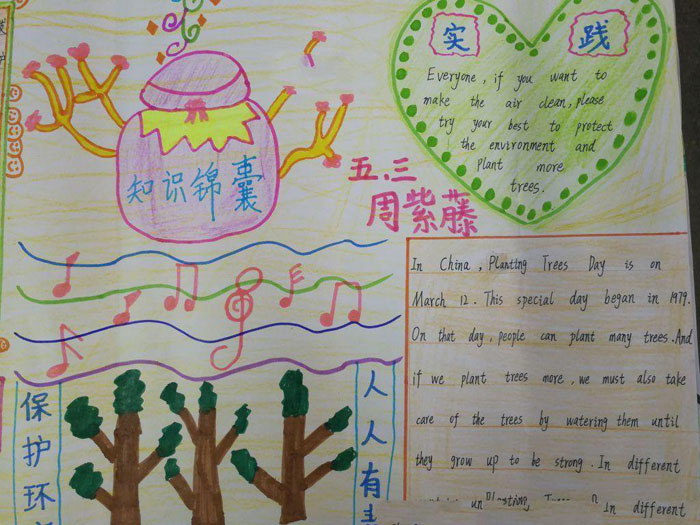 实 践
Everyone, if you want to
make the air clean, please
try your best to protect
the environment and
plant more
trees.
知识锦囊
五.三
周紫藤
In China, Planting Trees Day is on
March 12. This special day began in 1979.
On that day, people can plant many trees. And
if we plant trees more, we must also take
care of the trees by watering them until
they grow up to be strong. In different
In different
保护环
人人有